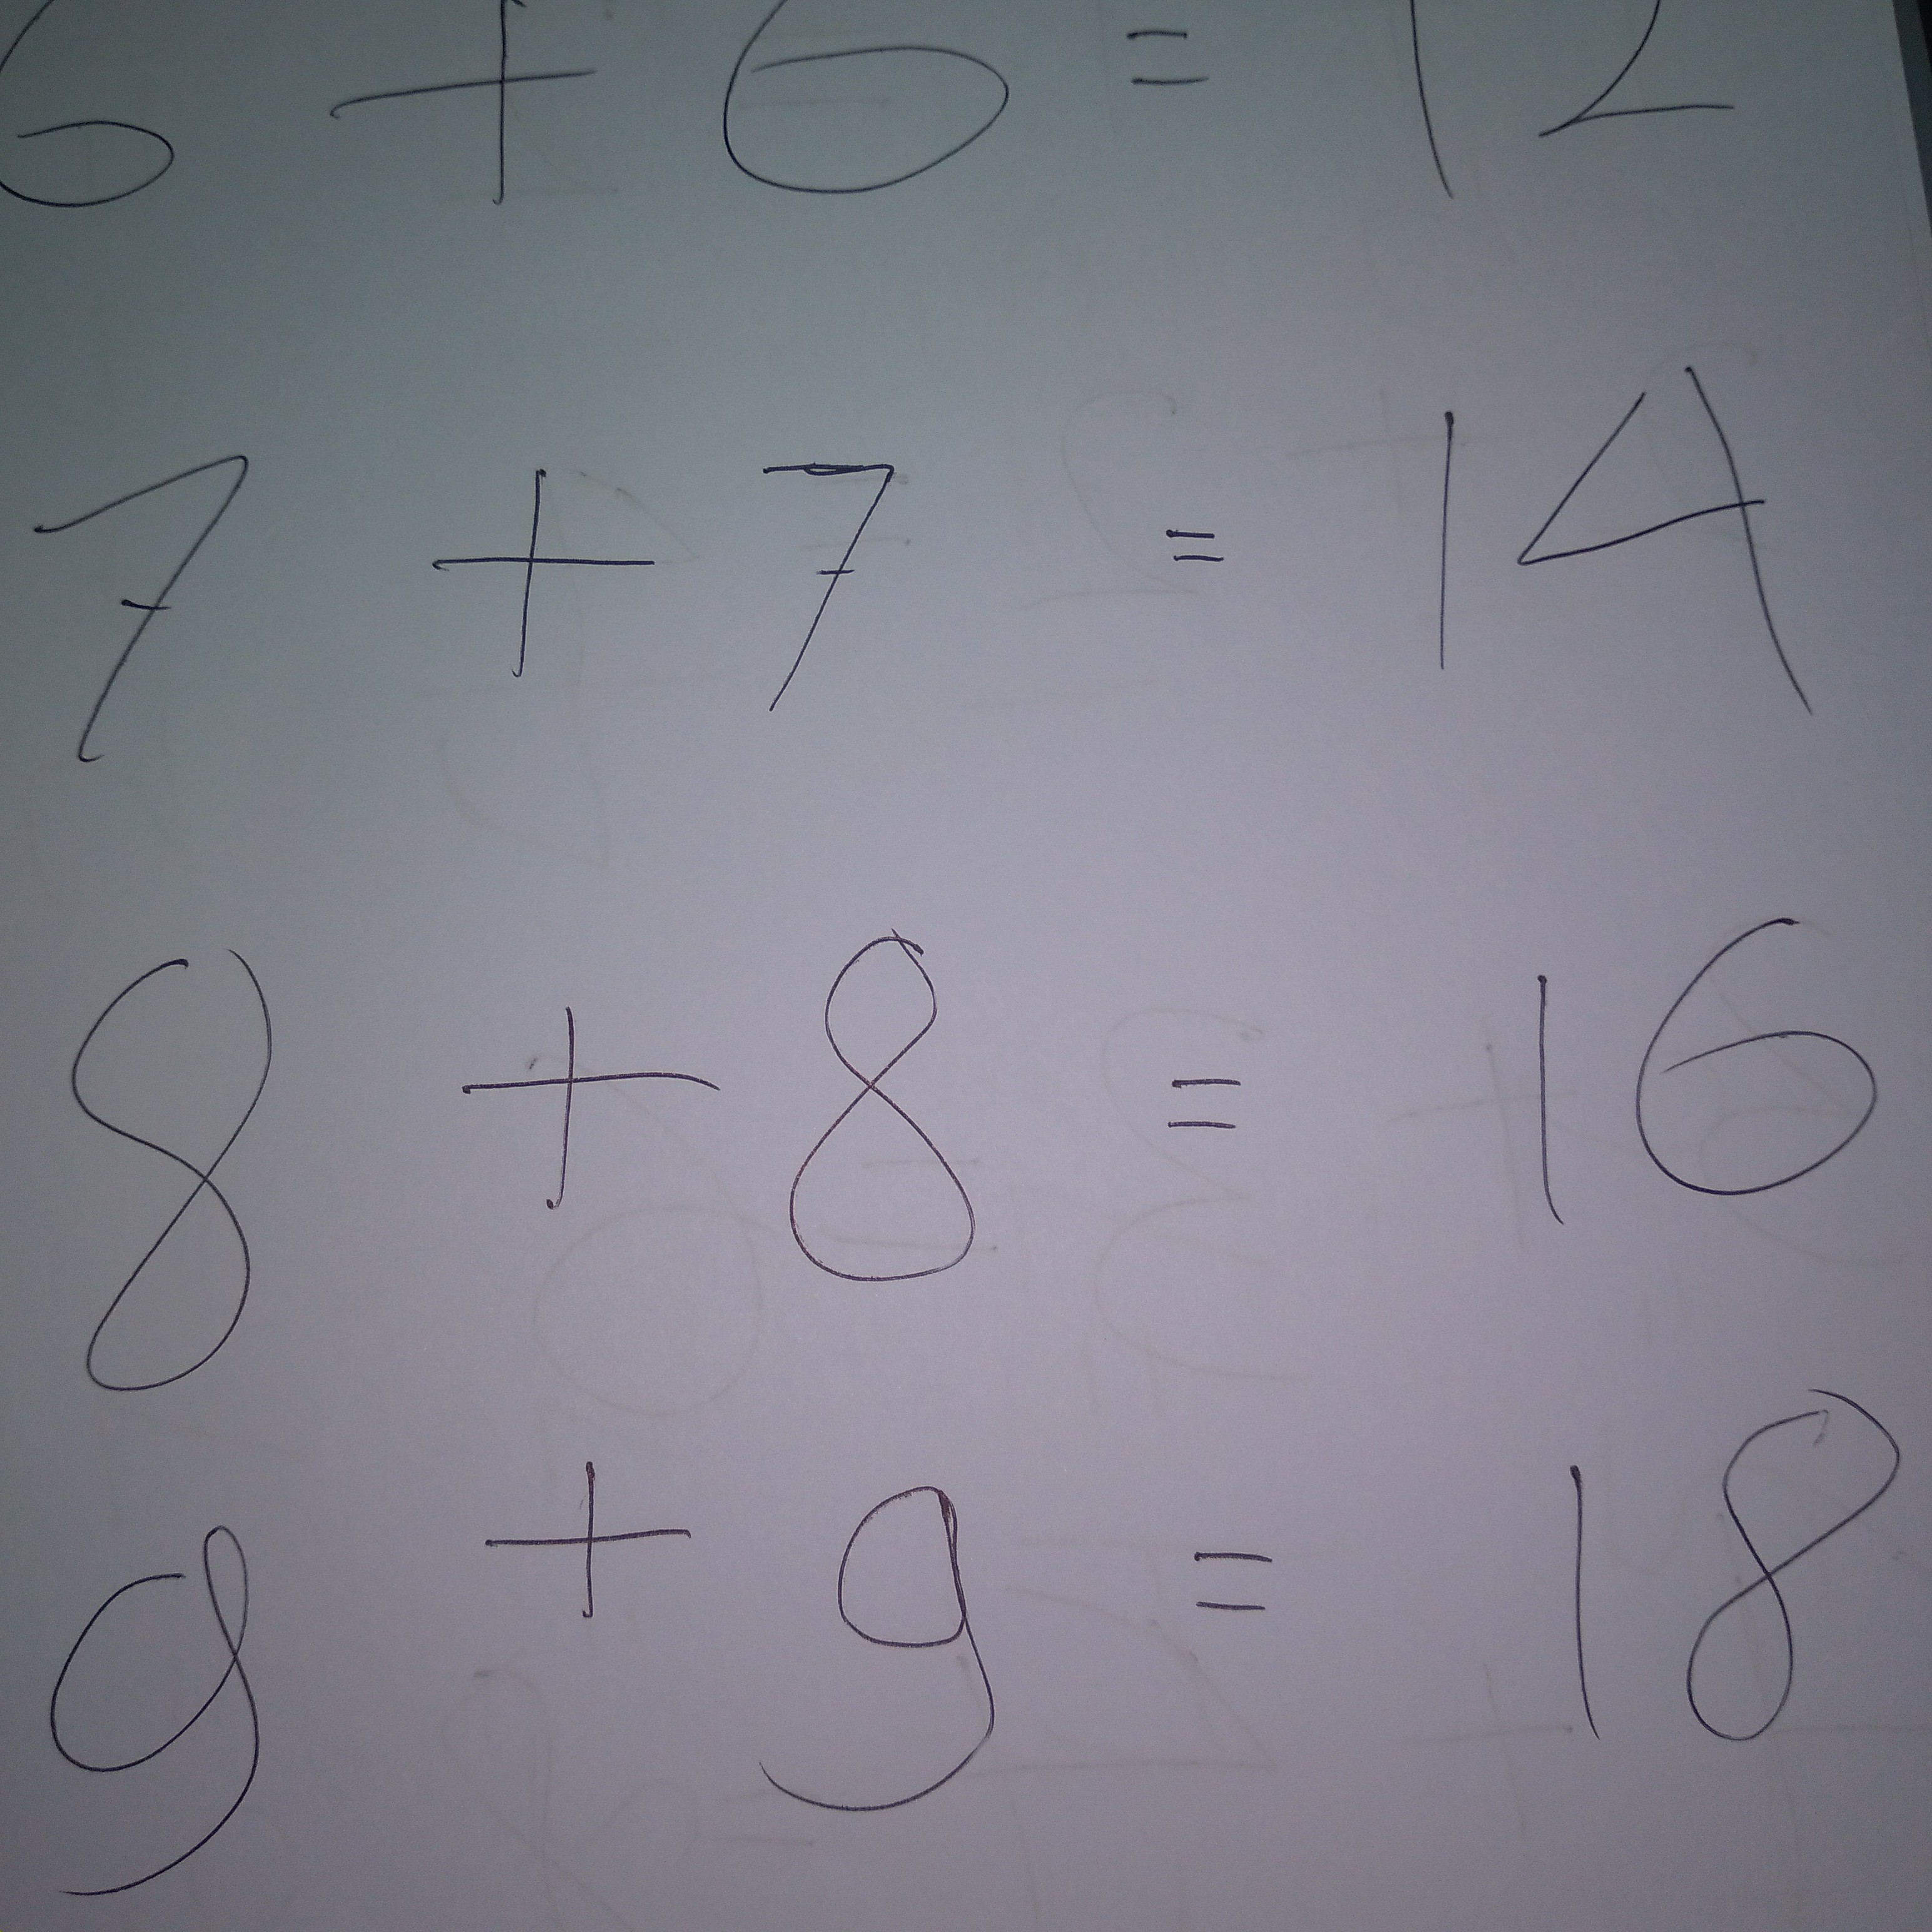 6 + 6 = 12
7 + 7 = 14
8 + 8 = 16
9 + 9 = 18